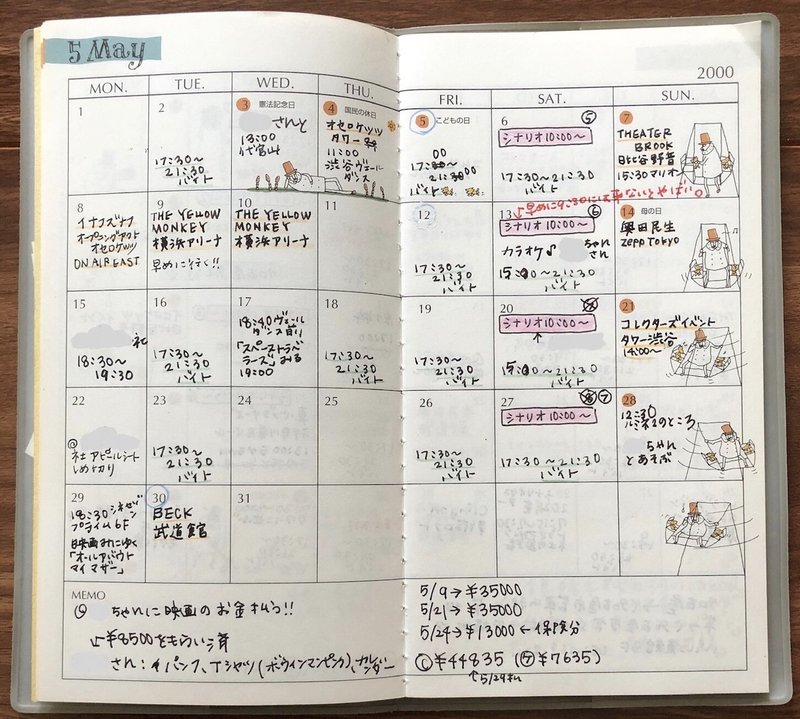 5 May
2000
MON. TUE. WED. THU. FRI. SAT. SUN.
1
2
17:30〜
21:30
バイト
3 憲法記念日
さんと
13:00
代官山
4 国民の休日
オセロケッツ
タワー
11:00
渋谷ヴェール
ダンス
5 こどもの日
00
21:30
バイト
6 ⑤
シナリオ10:00〜
17:30〜21:30
バイト
7
THEATER
BROOK
日比谷野音
15:30マリオン
8
イナズマ
オープニングアクト
オセロケッツ
ON AIR EAST
9
THE YELLOW
MONKEY
横浜アリーナ
早めに行く!!
10
THE YELLOW
MONKEY
横浜アリーナ
11
12
17:30〜
21:30
バイト
↓早めに9:30には来ないとやばい。
13 ⑥
シナリオ10:00〜
カラオケ♪ ちゃん
さん
〜21:30
バイト
14 母の日
奥田民生
ZEPP TOKYO
15
社
18:30〜
19:30
16
17:30〜
21:30
バイト
17
18:40 ヴェール
ダンス
「スペーストラベ
ラーズ」みる
19:00
18
17:30〜
21:30
バイト
19
17:30〜
21:30
バイト
20
シナリオ10:00〜
↑
〜21:30
バイト
21
コレクターズイベント
タワー渋谷
14:00〜
22
@
社アピールシート
しめ切り
23
17:30〜
21:30
バイト
24
25
26
17:30〜
21:30
バイト
27 ⑦
シナリオ10:00〜
17:30〜21:30
バイト
28
12:30
ルミネ2のところ
ちゃん
とあそぶ
29
18:30 シネセゾン
プライム6F
映画みにゆく
「オールアバウト
マイマザー」
30
BECK
武道館
31
MEMO
ちゃんに映画のお金払う!!
↓¥8500をもらい済
さん:イパンフ、Tシャツ(ボウインマンピンク)、カレンダー
5/9→¥35000
5/21→¥35000
5/24→¥13000←保険分
©¥44835 (⑦¥7635)
↑5/29払